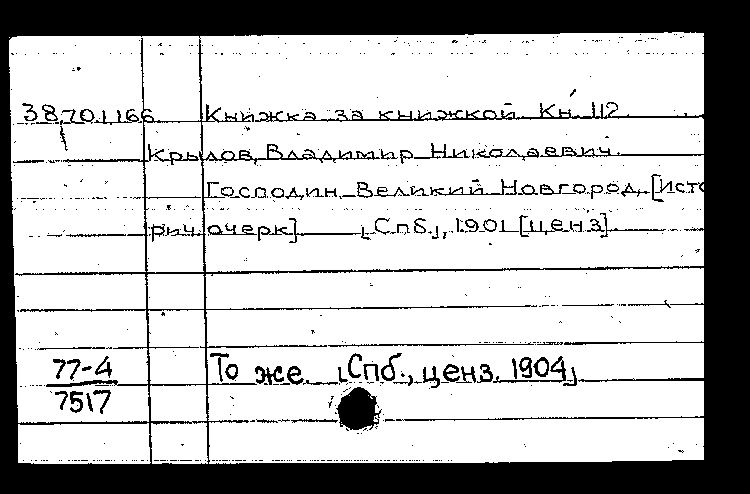 38.70.1.166 Книжка за книжкой Кн. 112
Крылов, Владимир Николаевич.
Господин Великий Новгород. [Исто
рич. очерк] [Спб.], 1901 [ценз].
77-4 То же. [Спб., ценз. 1904]
7517